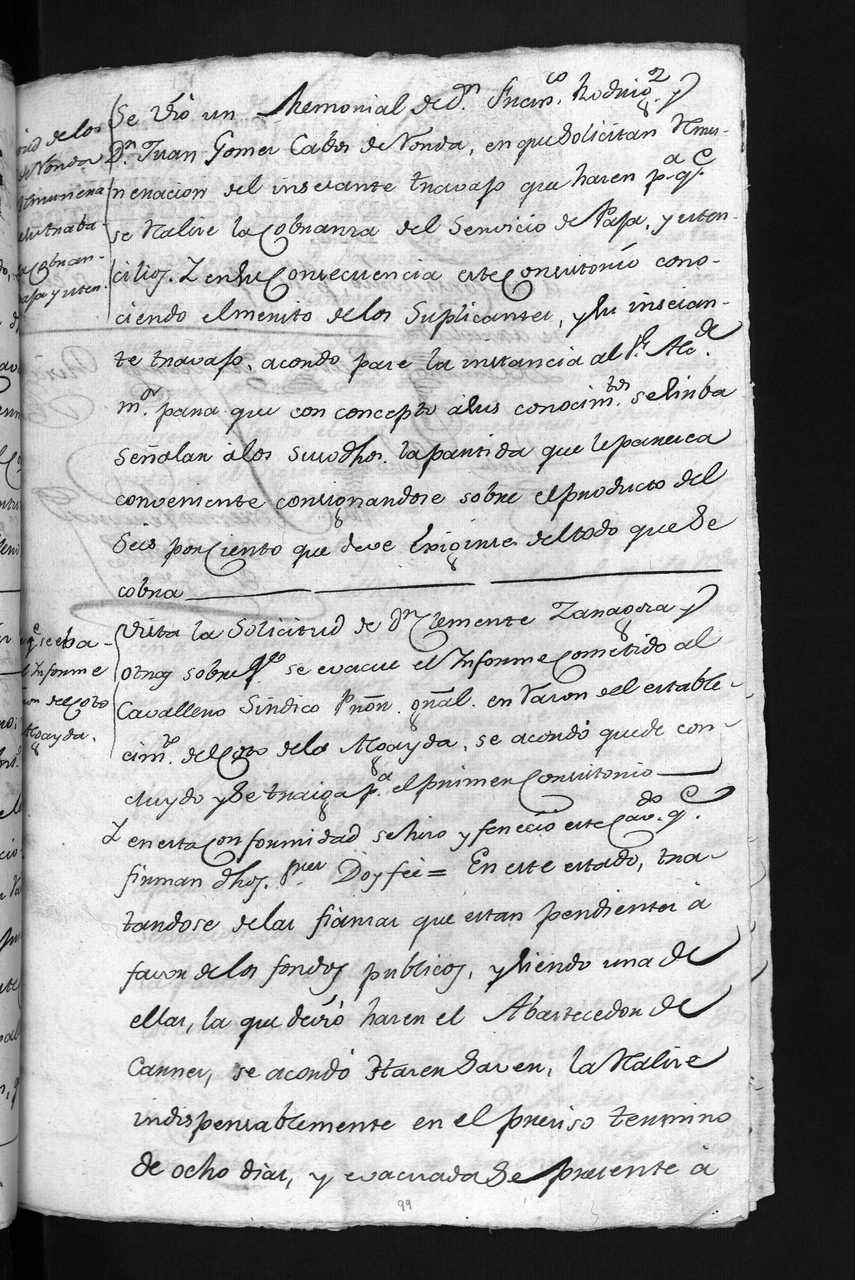 Se vio un Memorial de Dn. Franco. Rodrigz. y
Dn. Juan Gomez Cabos de Ronda, en que Solicitan Remu-
neracion del incesante travajo que hacen pa. qe.
se Realize la Cobranza del Servicio de Paja, y uten-
cilios. Y en su Consecuencia este Consistorio cono-
ciendo el merito de los Suplicantes, y su incesan-
te travajo, acordo pase la instancia al Sr. Alcde.
mor. para que con concepto à sus conocimtos. se sirba
Señalar à los susodhos. la partida que le parezca
combeniente consignandose sobre el producto del
Seis por Ciento que deve Exigirse del todo que Se
cobra
Vista la Solicitud de Dn. Clemente Zaragoza y
otros sobre qe. se evacue el Informe Cometido al
Cavallero Sindico Prôn. gñal. en razon del estable-
cimto. del Coto de la Alcayda, se acordó quede con-
cluydo y Se traiga pa. el primer Consistorio
Y en esta Conformidad se hizo y feneció este Cavdo. qe.
firman dhos. Sres. Doy feè = En este estado, tra-
tandose de las fianzas que estan pendientes à
favor de los fondos publicos, y siendo una de
ellas, la que devió hacer el Abastecedor de
Carnes, se acordó Hacer Saver, la Realize
indispensablemente en el preciso termino
de ocho dias, y evacuada Se presente à
de los
de Ronda
traba-
Cobran-
paja y uten.
qe. se trba-
el Informe
del Coto
Alcayda.
99